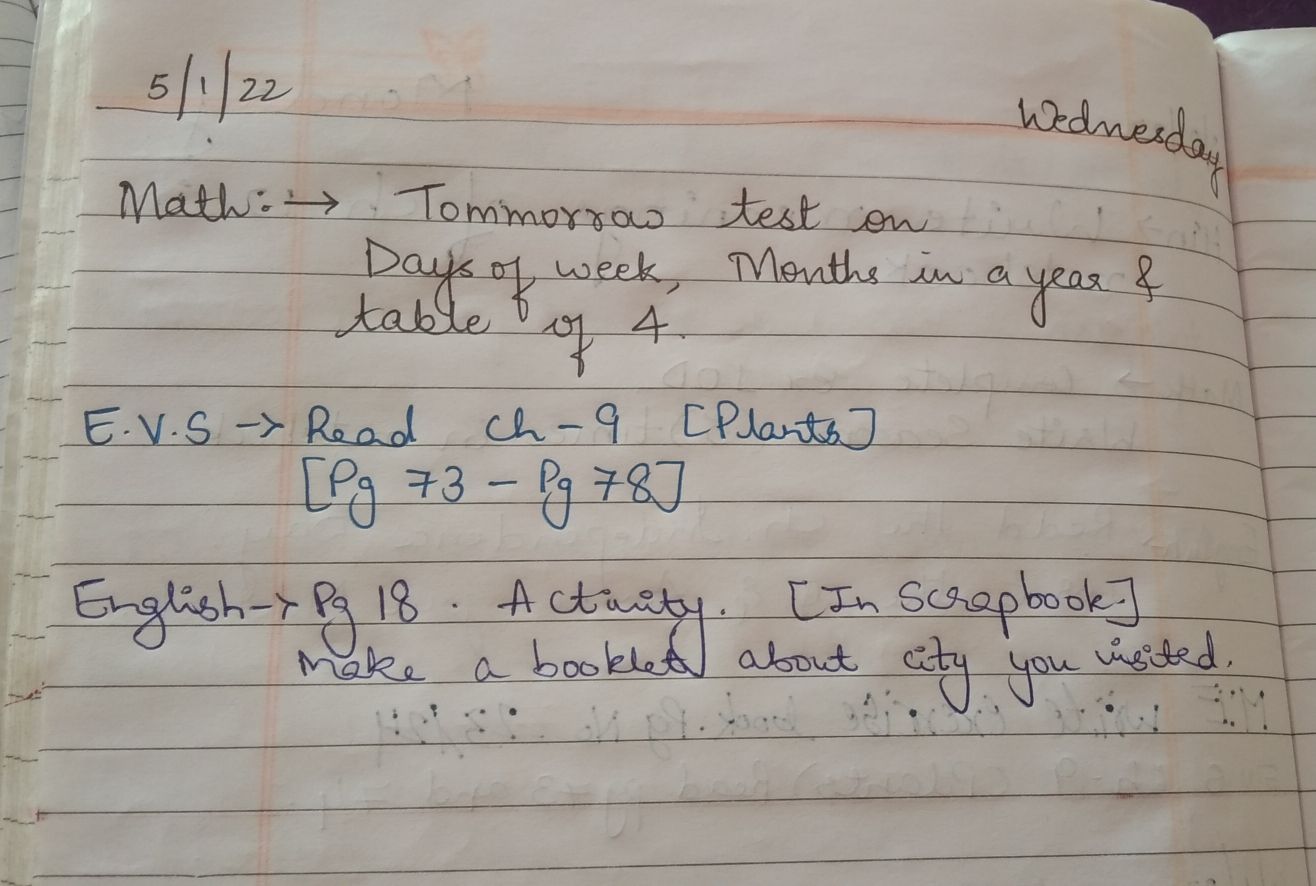 5/1/22
Wednesday
Math:→ Tommorrow test on
Days of week, Months in a year &
table of 4.
E.V.S → Read Ch-9 [Plants]
[Pg 73 - Pg 78]
English→ Pg 18. Activity. [In Scrapbook.]
Make a booklet about city you visited.